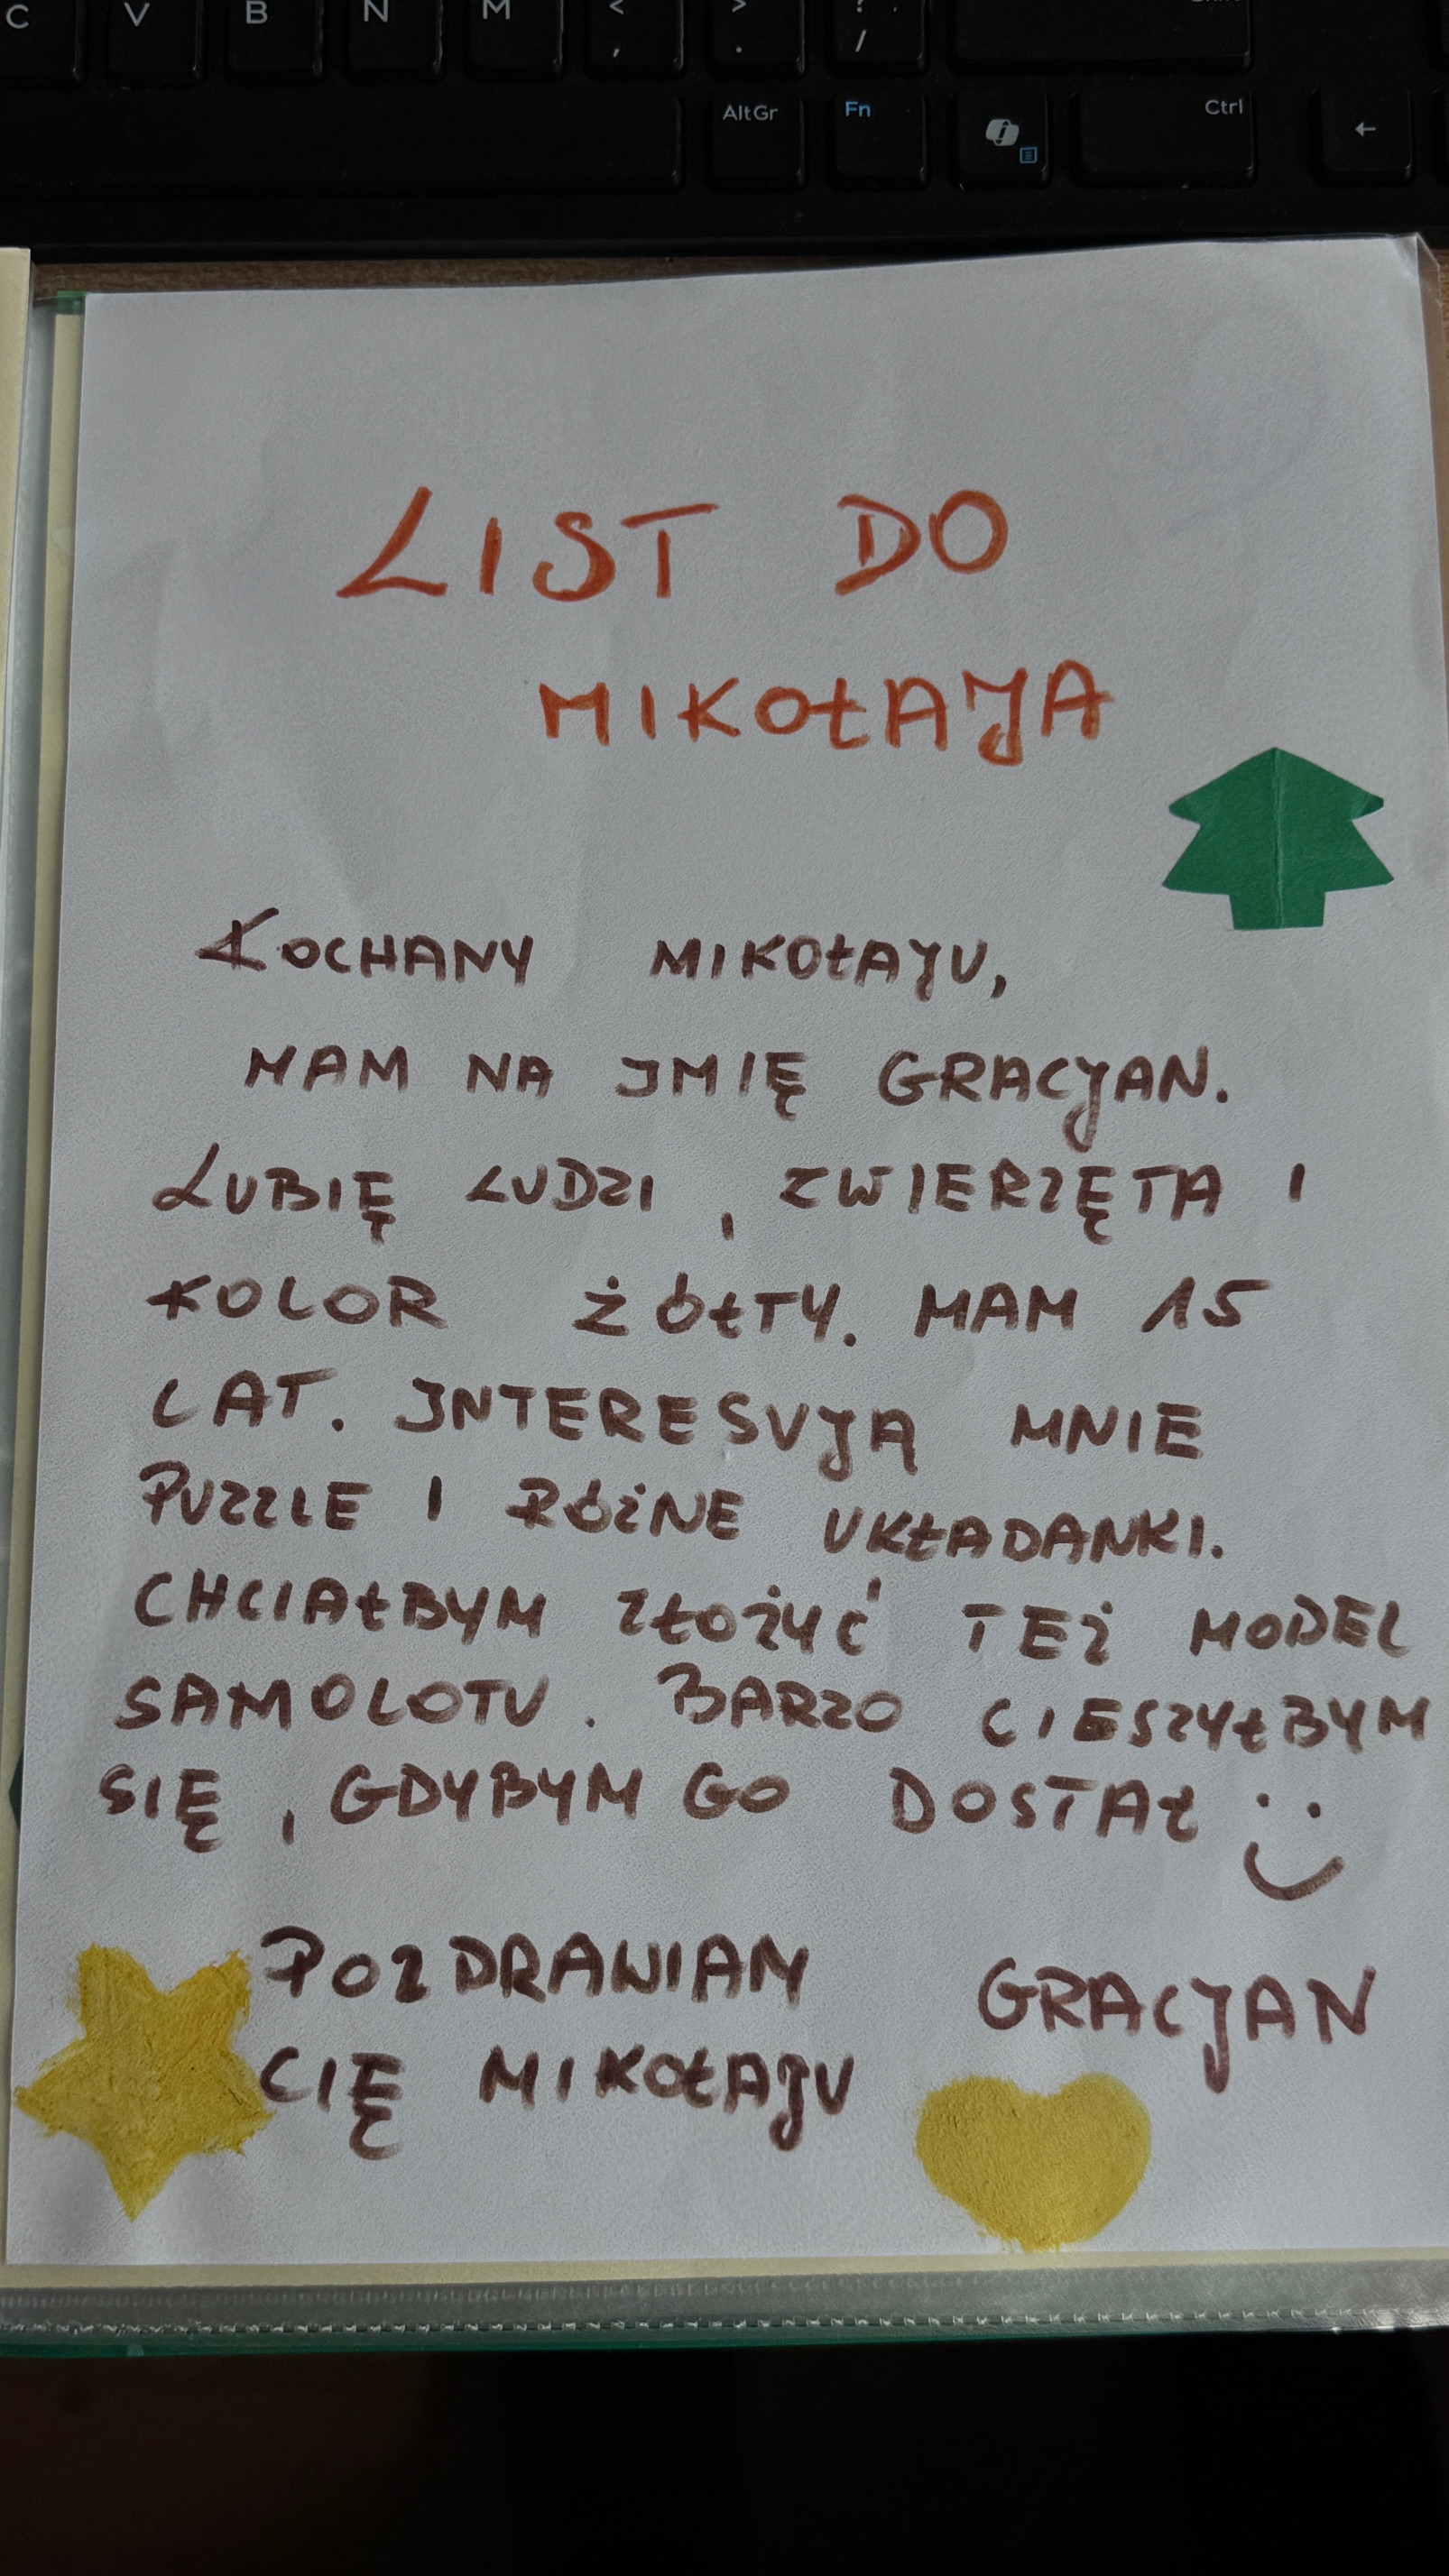 C V B N M < , > . ? /
AltGr Fn Ctrl ←
LIST DO
MIKOŁAJA
KOCHANY MIKOŁAJU,
MAM NA IMIĘ GRACJAN.
LUBIĘ LUDZI, ZWIERZĘTA I
KOLOR ŻÓŁTY. MAM 15
LAT. INTERESUJĄ MNIE
PUZZLE I RÓŻNE UKŁADANKI.
CHCIAŁBYM ZŁOŻYĆ TEŻ MODEL
SAMOLOTU. BARZO CIESZYŁBYM
SIĘ, GDYBYM GO DOSTAŁ
POZDRAWIAM GRACJAN
CIĘ MIKOŁAJU